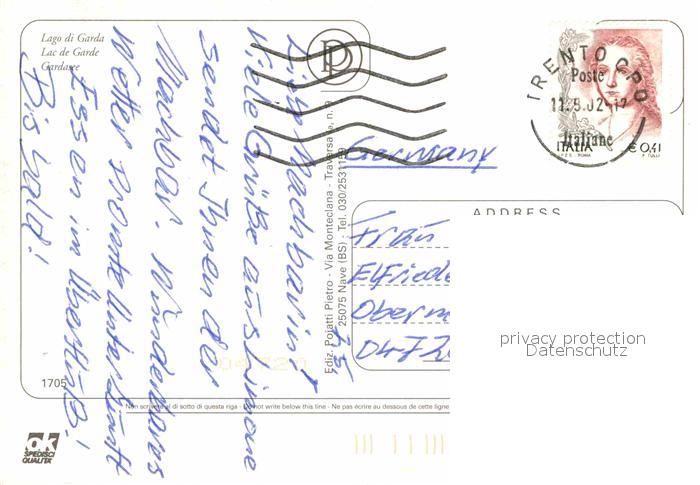 Lago di Garda
Lac de Garde
Gardasee
Liebe Nachbarin!
Viele Grüße aus Limone
sendet Ihnen der
Nachbar. Wunderbares
Wetter prompte Unterkunft
Essen im Überfluß!
Bis bald!
1705
ok
SPEDISCI
QUALITÀ
Ediz. Poiatti Pietro - Via Monteclana - Traversa n. 9
25075 Nave (BS) - Tel. 030/2531159
Non scrivere al di sotto di questa riga - Do not write below this line - Ne pas écrire au dessous de cette ligne
PD
TRENTO CPO
11.9.02-12
Poste
Italiane
ITALIA
€ 0,41
I.P.Z.S. - ROMA
F. TULLI
Germany
ADDRESS
Frau
Elfriede
Oberm
0472
privacy protection
Datenschutz